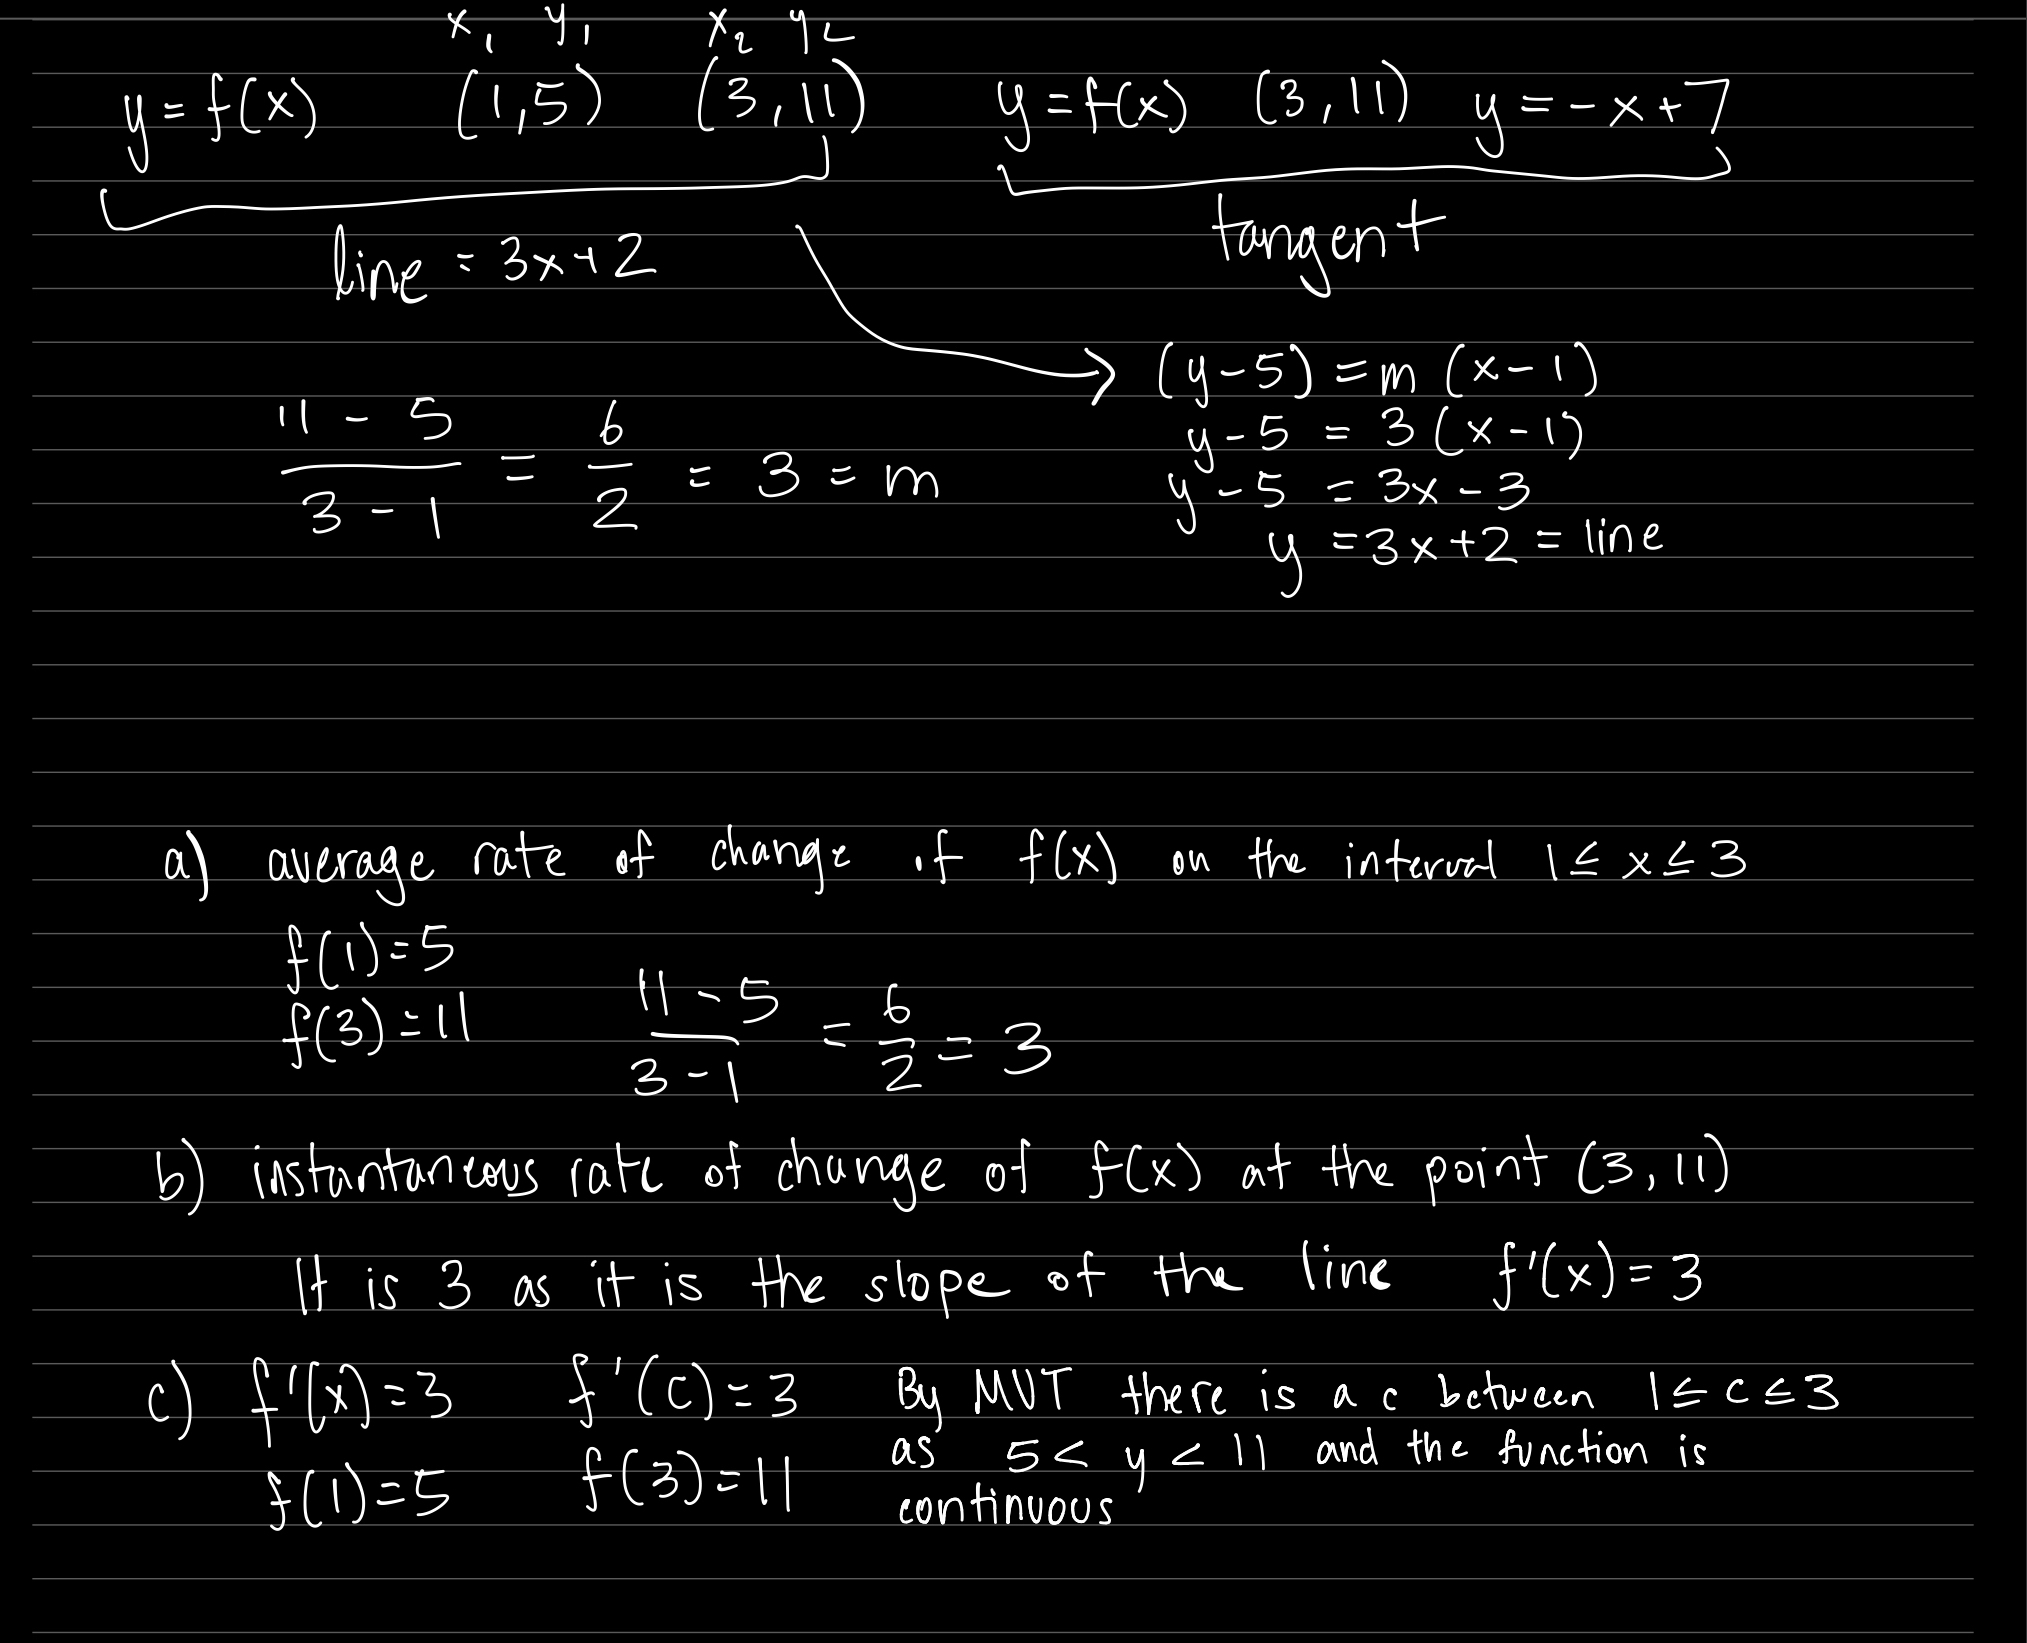 x₁ y₁ x₂ y₂
y = f(x) (1,5) (3,11) y = f(x) (3,11) y = -x+7
line = 3x+2 tangent
(y-5) = m (x-1)
y-5 = 3(x-1)
y-5 = 3x-3
y = 3x+2 = line
11-5/3-1 = 6/2 = 3 = m
a) average rate of change of f(x) on the interval 1≤x≤3
f(1)=5
f(3)=11 11-5/3-1 = 6/2 = 3
b) instantaneous rate of change of f(x) at the point (3,11)
It is 3 as it is the slope of the line f'(x)=3
c) f'(x)=3 f'(c)=3 By MVT there is a c between 1≤c≤3
f(1)=5 f(3)=11 as 5<y<11 and the function is
continuous